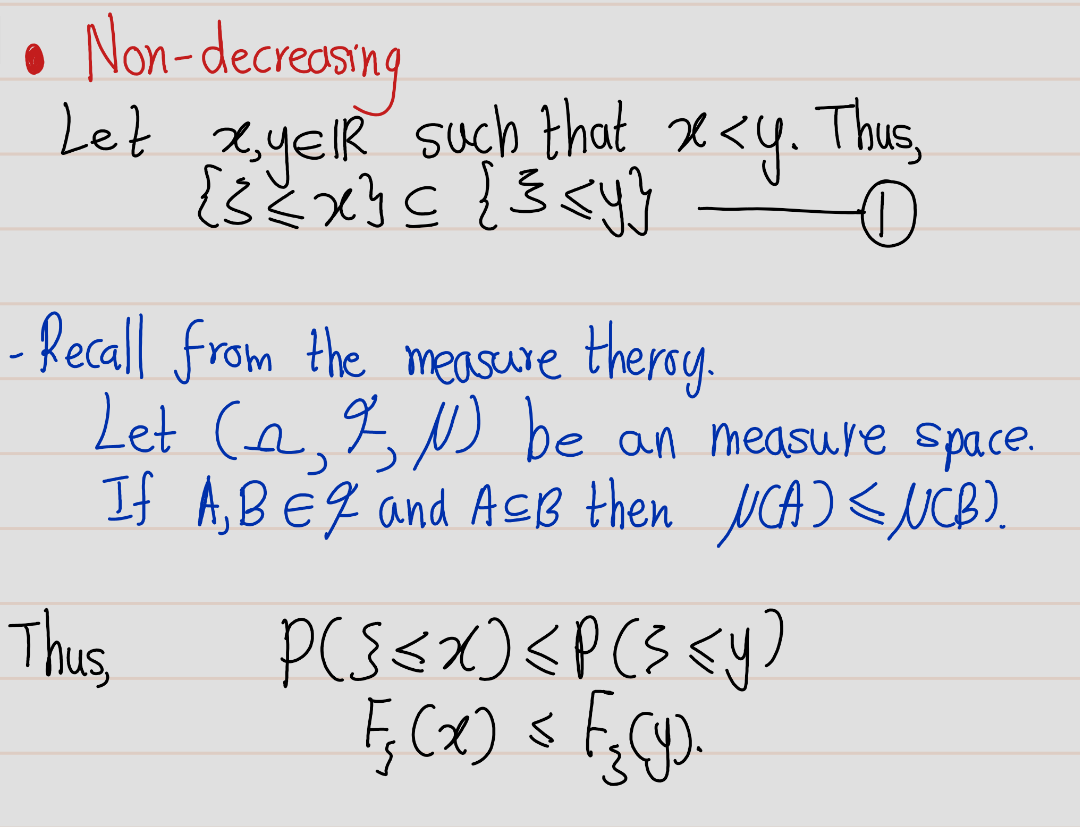 • Non-decreasing
Let x,y∈ℝ such that x<y. Thus,
{ξ≤x}⊆{ξ≤y} —— ①
-Recall from the measure theroy.
Let (Ω, ℱ, μ) be an measure space.
If A,B∈ℱ and A⊆B then μ(A)≤μ(B).
Thus, P(ξ≤x)≤P(ξ≤y)
F_ξ(x) ≤ F_ξ(y).